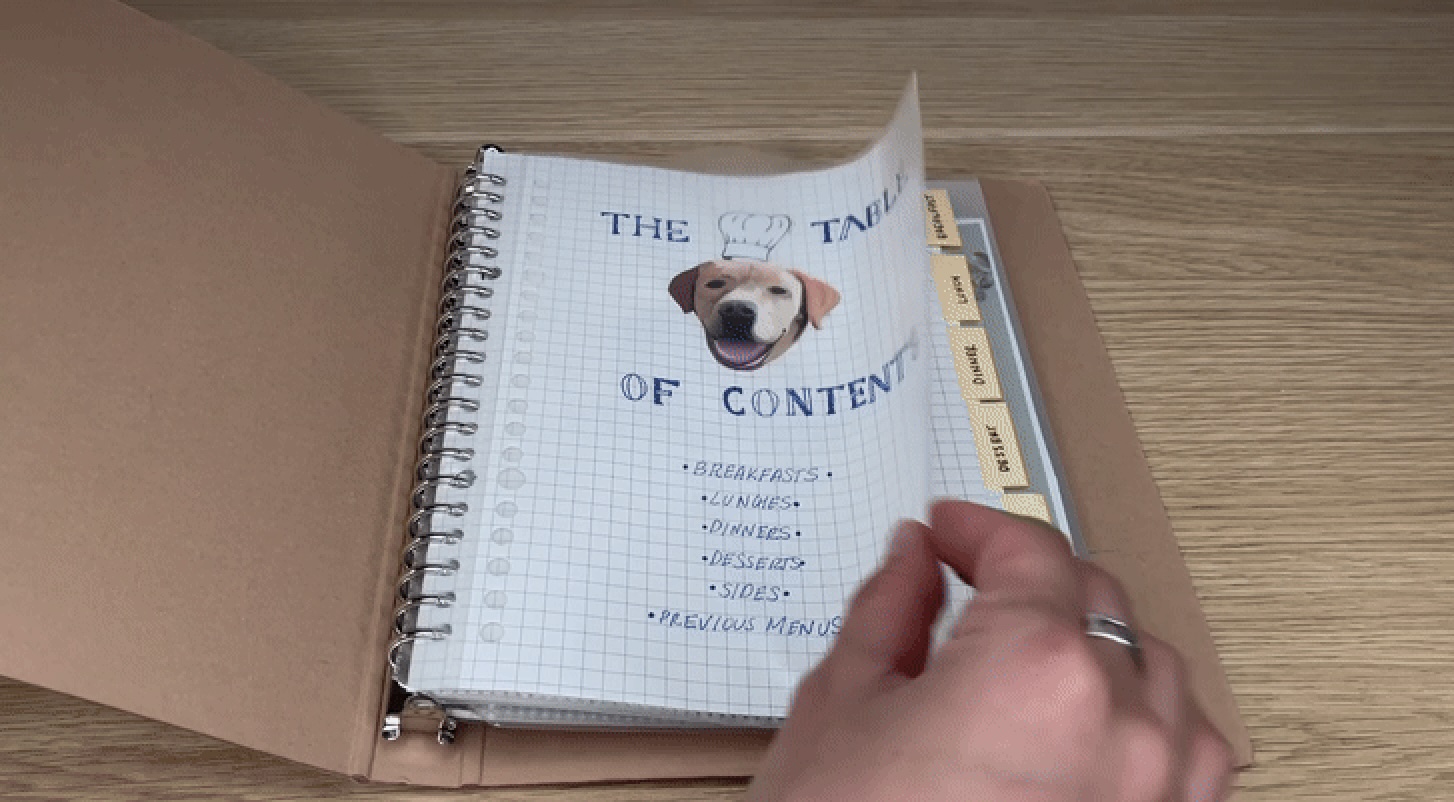 THE TABLE
OF CONTENTS
• BREAKFASTS •
• LUNCHES •
• DINNERS •
• DESSERTS •
• SIDES •
• PREVIOUS MENUS
BREAKFAST
LUNCH
DINNER
DESSERT